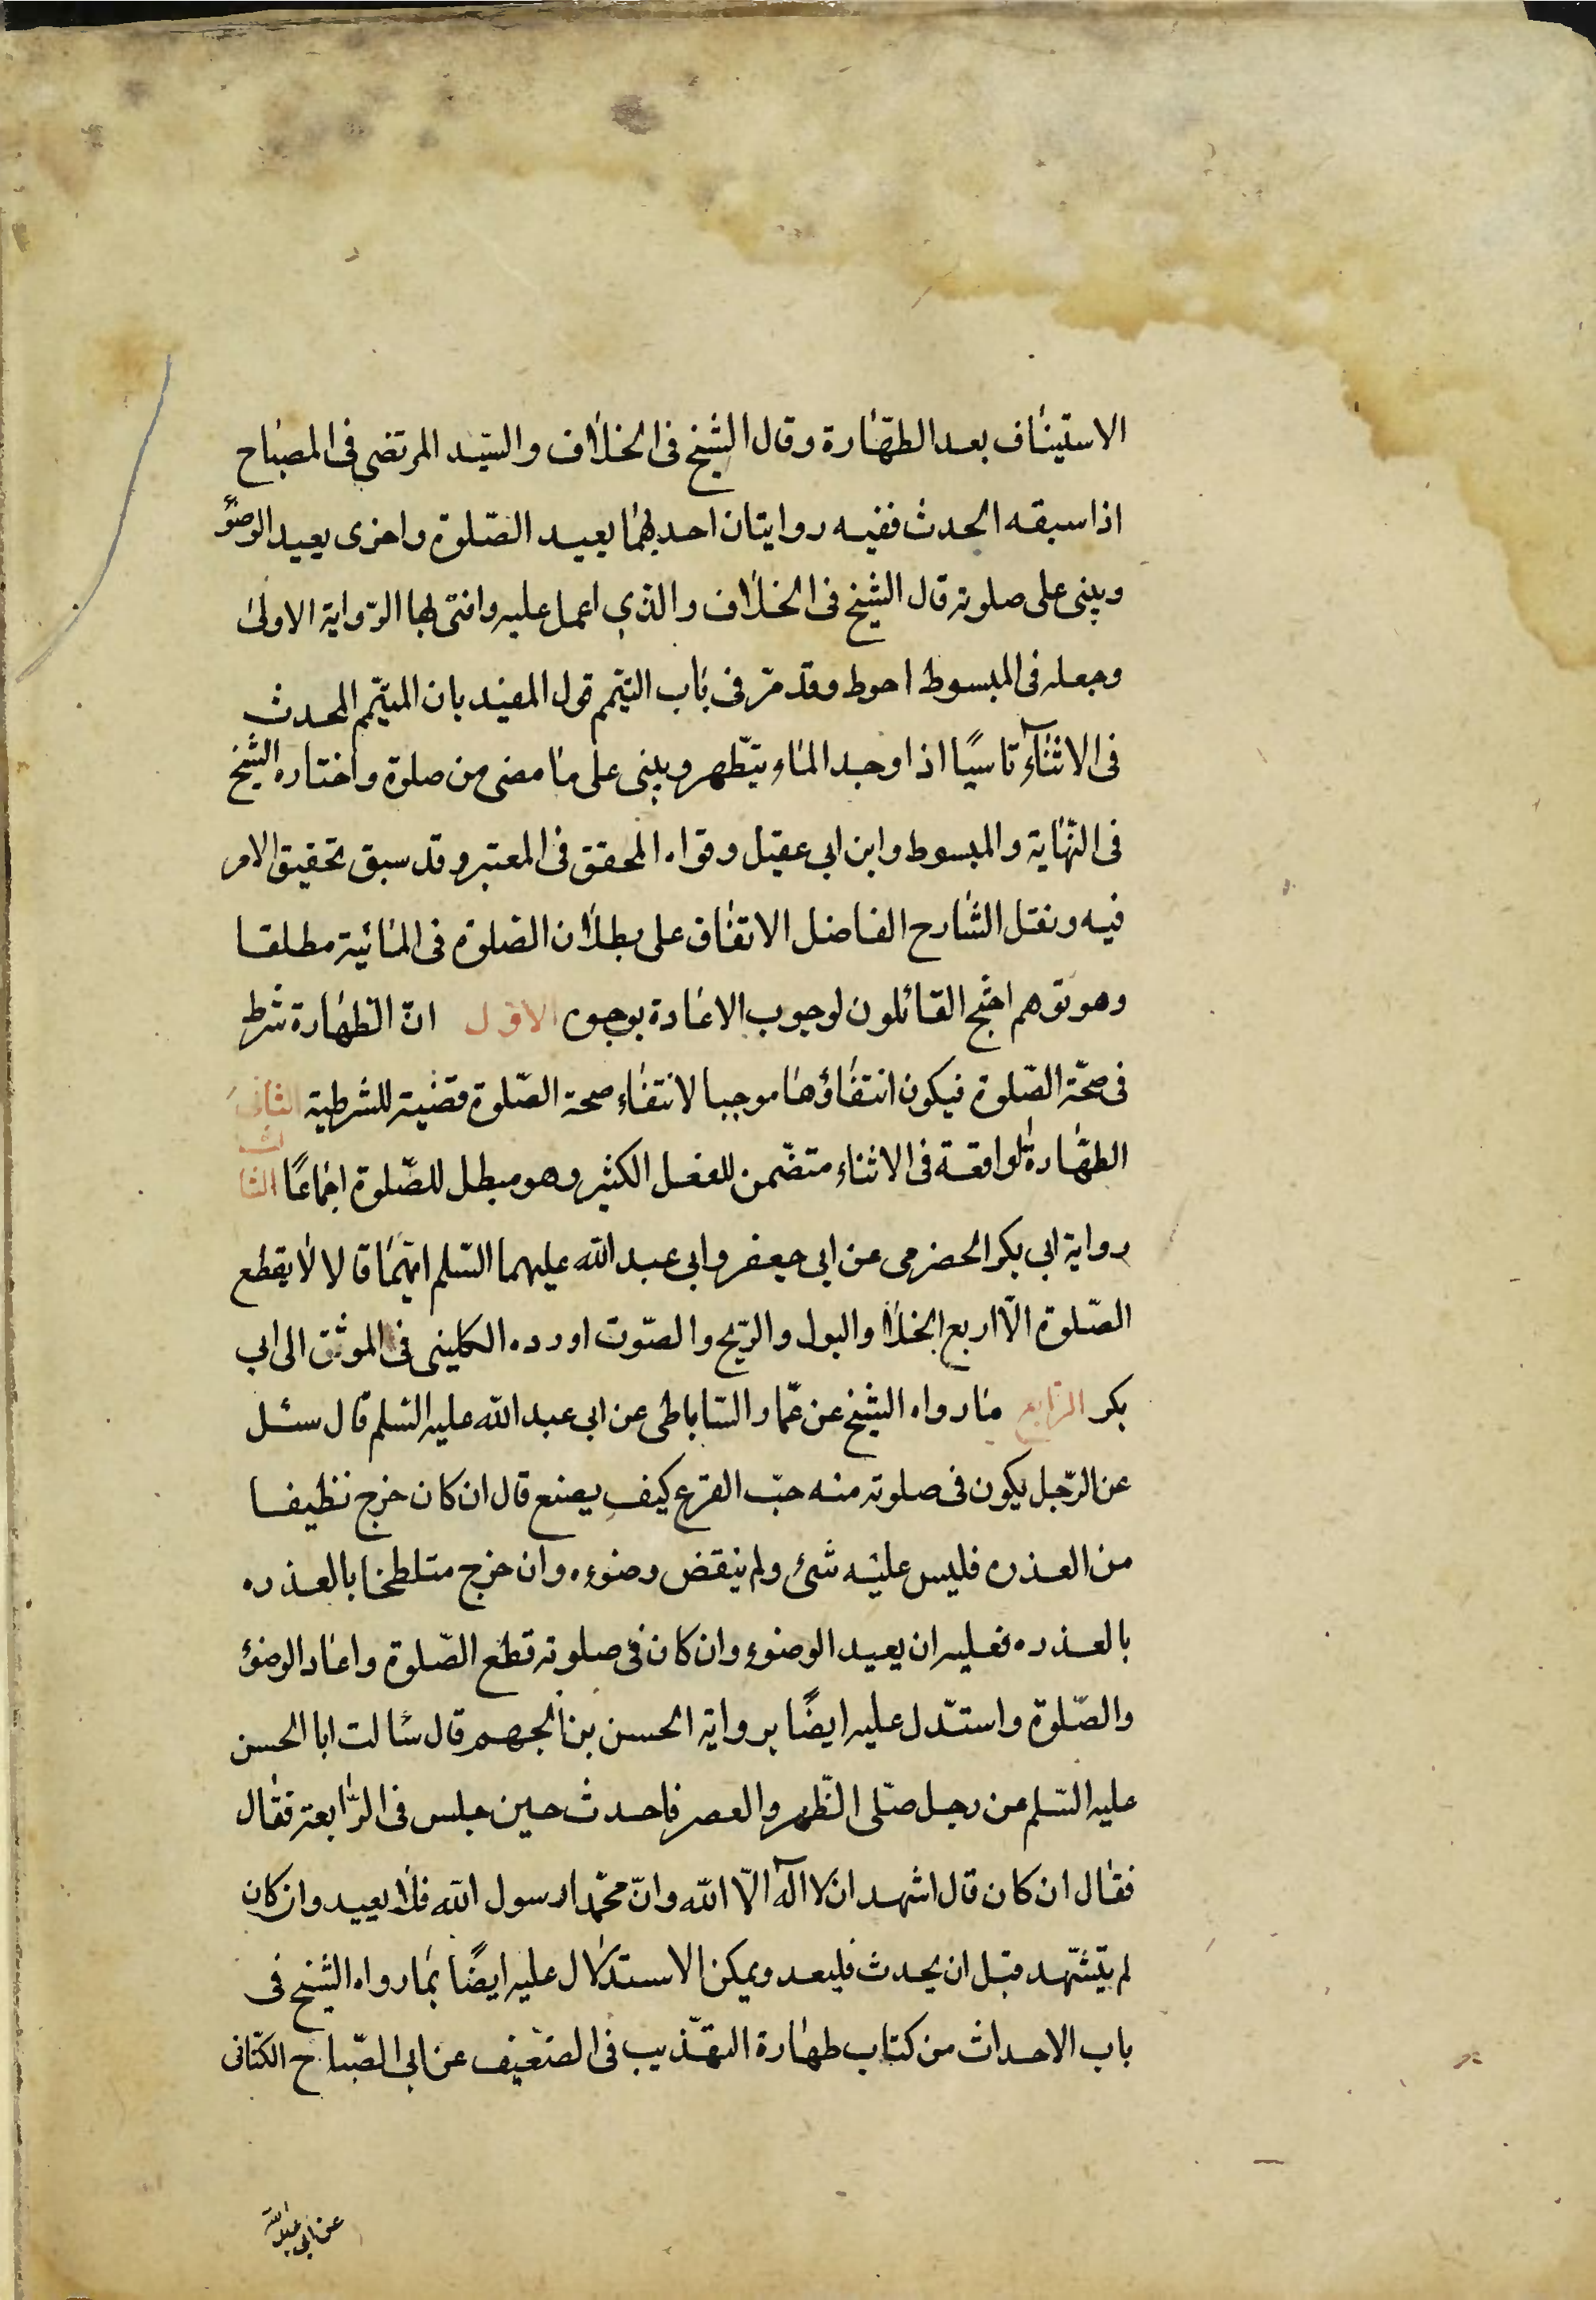 الاستيناف بعد الطهّارة وقال الشيخ فى الخلاف والسّيّد المرتضى فى المصباح
اذا سبقه الحدث ففيه روايتان احديهما يعيد الصّلوة واخرى يعيد الوضؤ
ويبنى على صلوته قال الشيخ فى الخلاف والذي اعمل عليه وافتى بها الرّواية الاولى
وجعله فى المبسوط احوط وقد مّر فى باب التيّمم قول المفيد بان الميّتمم المحدث
فى الاثناء تاسيًا اذا وجد الماء يتّطهر ويبنى على ما مضى من صلوة واختاره الشيخ
فى النّهاية والمبسوط وابن ابى عقيل وقواه المحقق فى المعتبر وقد سبق تحقيق الامر
فيه ونقل الشّارح الفاضل الاتفاق على بطلان الصّلوة فى المائية مطلقا
وهو توهم احتج القائلون لوجوب الاعادة بوجوه الاوّل انّ الطّهارة شرط
فى صحّة الصّلوة فيكون انتفاؤها موجبا لانتفاء صحة الصّلوة قضية للشرطية الثانى
الطهّارة لواقعة فى الاثناء متضّمن للفعل الكثير وهو مبطل للصّلوة اجماعًا الثالث
رواية ابى بكر الحضرمى عن ابى جعفر وابى عبد الله عليهما السّلم انّهما قالا لا يقطع
الصّلوة الّا اربع الخلا والبول والرّيح والصّوت اورده الكلينى فى الموثق الى ابى
بكر الرّابع ما رواه الشيخ عن عمّار السّاباطى عن ابى عبد الله عليه السّلم قال سئل
عن الرّجل يكون فى صلوته منه حبّ القرع كيف يصنع قال ان كان خرج نظيفا
من العذره فليس عليه شئ ولم ينقض وضوءه وان خرج متلطخا بالعذره
بالعذره فعليه ان يعيد الوضوء وان كان فى صلوته قطع الصّلوة واعاد الوضؤ
والصّلوة واستدّل عليه ايضًا برواية الحسن بن الجهم قال سألت ابا الحسن
عليه السّلم عن رجل صلّى الظّهر والعصر فاحدث حين جلس فى الرّابعة فقال
فقال ان كان قال اشهد ان لا اله الّا الله وانّ محمّدا رسول الله فلا يعيد وان كان
لم يتشّهد قبل ان يحدث فليعد ويمكن الاستدلال عليه ايضًا بما رواه الشيخ فى
باب الاحداث من كتاب طهارة التهّذيب فى الضعيف عن ابى الصّباح الكنّانى
عن ابى عبد الله